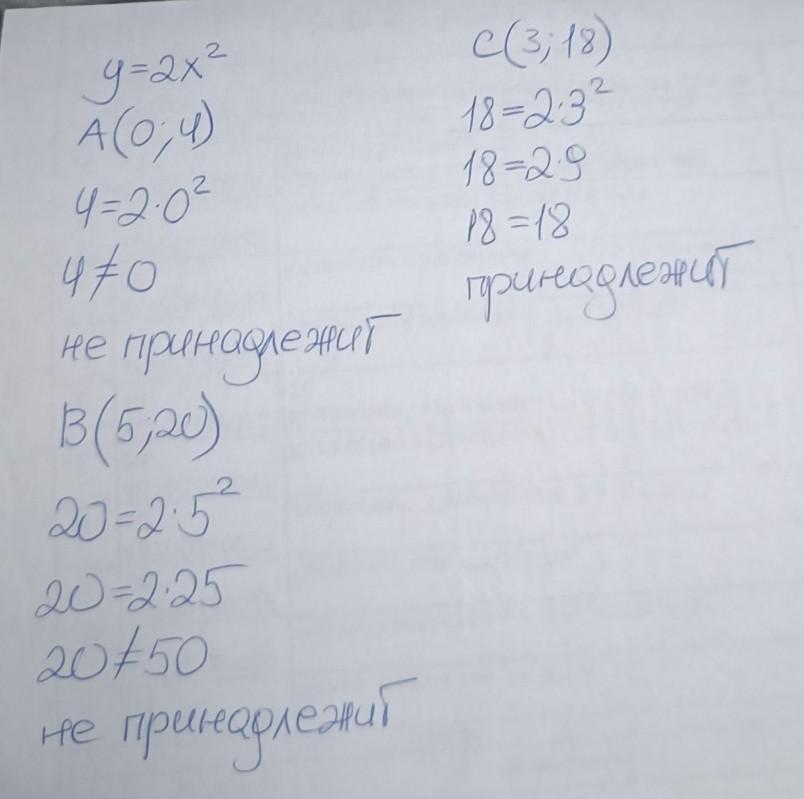 y=2x²
A(0;4)
4=2·0²
4≠0
не принадлежит
B(5;20)
20=2·5²
20=2·25
20≠50
не принадлежит
C(3;18)
18=2·3²
18=2·9
18=18
принадлежит